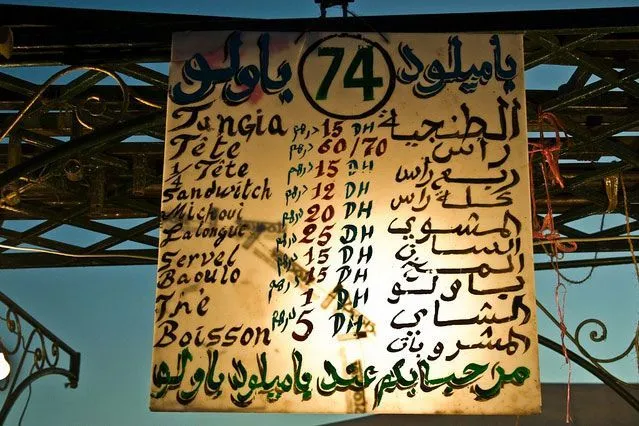 ياولو 74 ياميلود
Tangia 15 درهم DH الطنجية
Tête درهم 60/70 راس
¼ Tête درهم 15 DH ربع راس
Sandwitch درهم 12 DH كلة راس
Michoui درهم 20 DH المشوي
Lalongue درهم 25 DH اللسان
Servel درهم 15 DH المخ
Baoulo درهم 15 DH باولو
Thé 1 DH الشاي
Boisson درهم 5 DH المشروبات
مرحبا بكم عند ياميلود ياولو